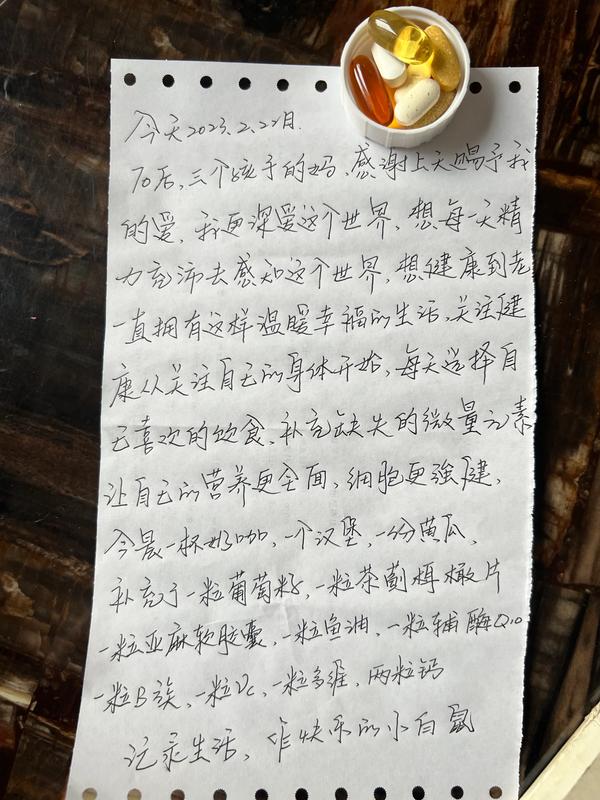 今天2023.2.22月.
70后,三个孩子的妈,感谢上天赐予我
的爱,我更深爱这个世界,想每一天精
力充沛去感知这个世界,想健康到老
一直拥有这样温暖幸福的生活,关注健
康从关注自己的身体开始,每天选择自
己喜欢的饮食,补充缺失的微量元素
让自己的营养更全面,细胞更强健,
今晨一杯奶咖,一个汉堡,一份黄瓜,
补充了一粒葡萄籽,一粒茶蓟橄片
一粒亚麻软胶囊,一粒鱼油,一粒辅酶Q10
一粒B族,一粒Vc,一粒多维,两粒钙
记录生活,作快乐的小白鼠